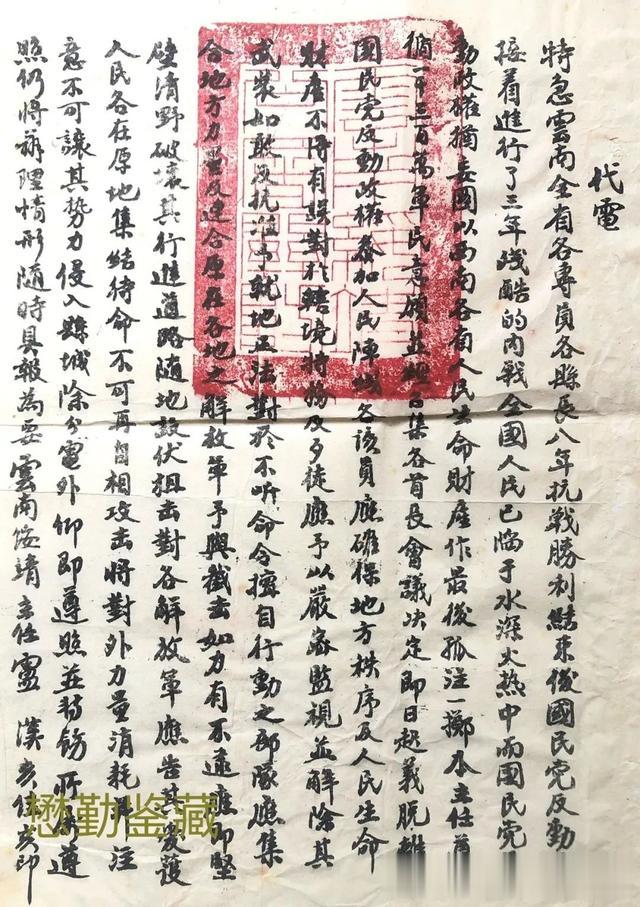 代電
特急雲南全省各專員各縣長八年抗戰勝利結束後國民党反動
接着進行了三年残酷的内戰全國人民已陷于水深火热中而國民党
動政權猶妄圖以西南各省人民生命財產作最後孤注一擲本主任
循一千三百萬軍民意願並經召集各首長會議决定即日起義脱離
國民党反動政權叅加人民陣綫各該員應確保地方秩序及人民生命
財產不得有誤對於轄境特物及歹徒應予以嚴密監視並解除其
武装如敢反抗滋事就地正法對於不听命令擅自行動之部隊應集
合地方力量及連合原在各地之解放軍予與截击如力有不逮應即堅
壁清野破壞其行進道路随地設伏狙击對各解放軍應告其爰護
人民各在原地集結待命不可再自相攻击將對外力量消耗并注
意不可讓其勢力侵入縣城除分電外仰即遵照並转飭所属遵
照仍将辦理情形随時具報為要雲南绥靖主任盧漢亥佳亥印
懋勤鉴藏